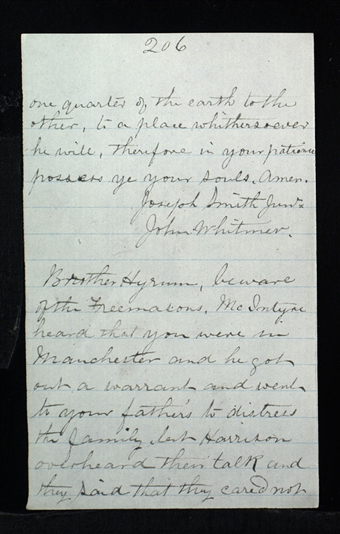 206
one quarter of the earth to the
other, to a place whithersoever
he will, therefore in your patience
possess ye your souls. Amen.
Joseph Smith Junr.
John Whitmer.
Brother Hyrum, beware
of the Freemasons, McIntyre
heard that you were in
Manchester and he got
out a warrant and went
to your father's to distress
the family, but Harrison
overheard their talk and
they said that they cared not